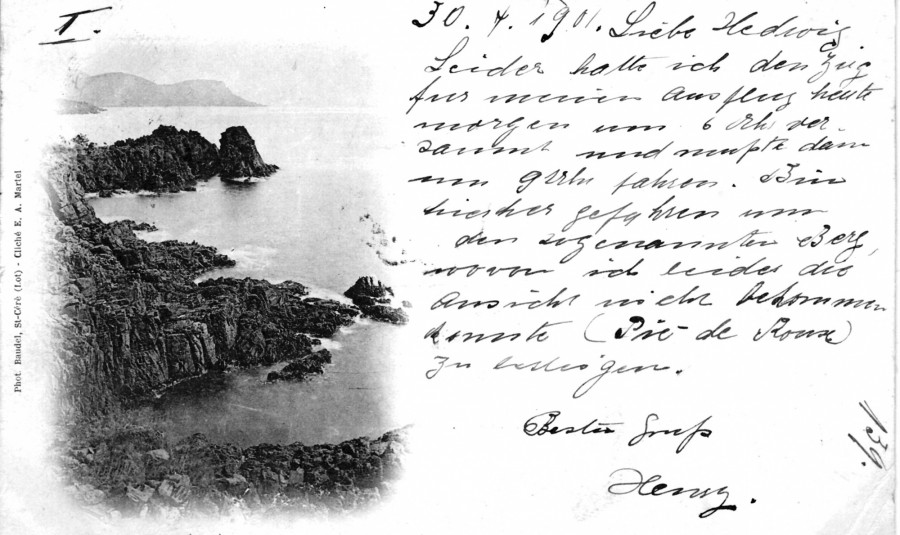 I.
30. 4. 1901. Liebe Hedwig
Leider hatte ich den Zug
für meinen Ausflug heute
morgen um 6 Uhr ver-
säumt und mußte dann
um 9 Uhr fahren. Bin
hierher gefahren um
den sogenannten Berg,
wovon ich leider die
Ansicht nicht bekommen
konnte (Pic de Roux)
zu
Bester Gruß
Henry.
139.
Phot. Baudel, St-Céré (Lot) - Cliché E. A. Martel